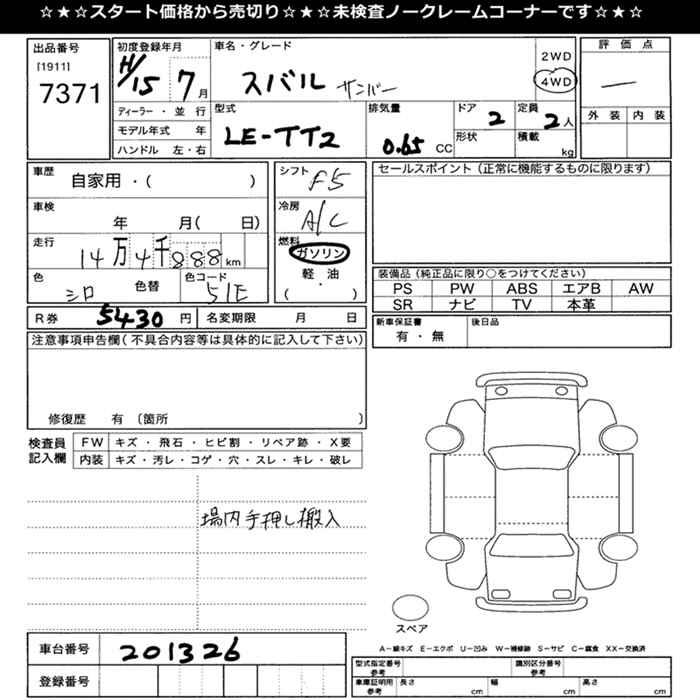 ☆★☆★スタート価格から売切り☆★☆★未検査ノークレームコーナーです☆★☆★
出品番号
[1911]
7371
初度登録年月
H/15 7月
ディーラー・並行
モデル年式 年
ハンドル 左・右
車名・グレード
スバル サンバー
2WD
4WD
型式
LE-TT2
排気量
0.65 CC
ドア 2
形状
定員 2人
積載 kg
評価点
—
外装 内装
車歴 自家用・( )
車検 年 月( 日)
走行 14万4千888km
色 シロ 色替
色コード 51E
シフト F5
冷房 A/C
燃料
ガソリン
軽・油
( ・ )
セールスポイント(正常に機能するものに限ります)
装備品(純正品に限り○をつけてください)
PS PW ABS エアB AW
SR ナビ TV 本革
新車保証書 後日品
有・無
R券 5430 円 名変期限 月 日
注意事項申告欄(不具合内容等は具体的に記入して下さい)
修復歴 有 〔箇所 〕
検査員
記入欄
FW キズ・飛石・ヒビ割・リペア跡・X要
内装 キズ・汚レ・コゲ・穴・スレ・キレ・破レ
場内手押し搬入
スペア
A−線キズ E−エクボ U−凹み W−補修跡 S−サビ C−腐食 XX−交換済
車台番号 201326
登録番号
型式指定番号
参考
識別区分番号
参考
車庫証明用
参考
長さ cm 幅 cm 高さ cm